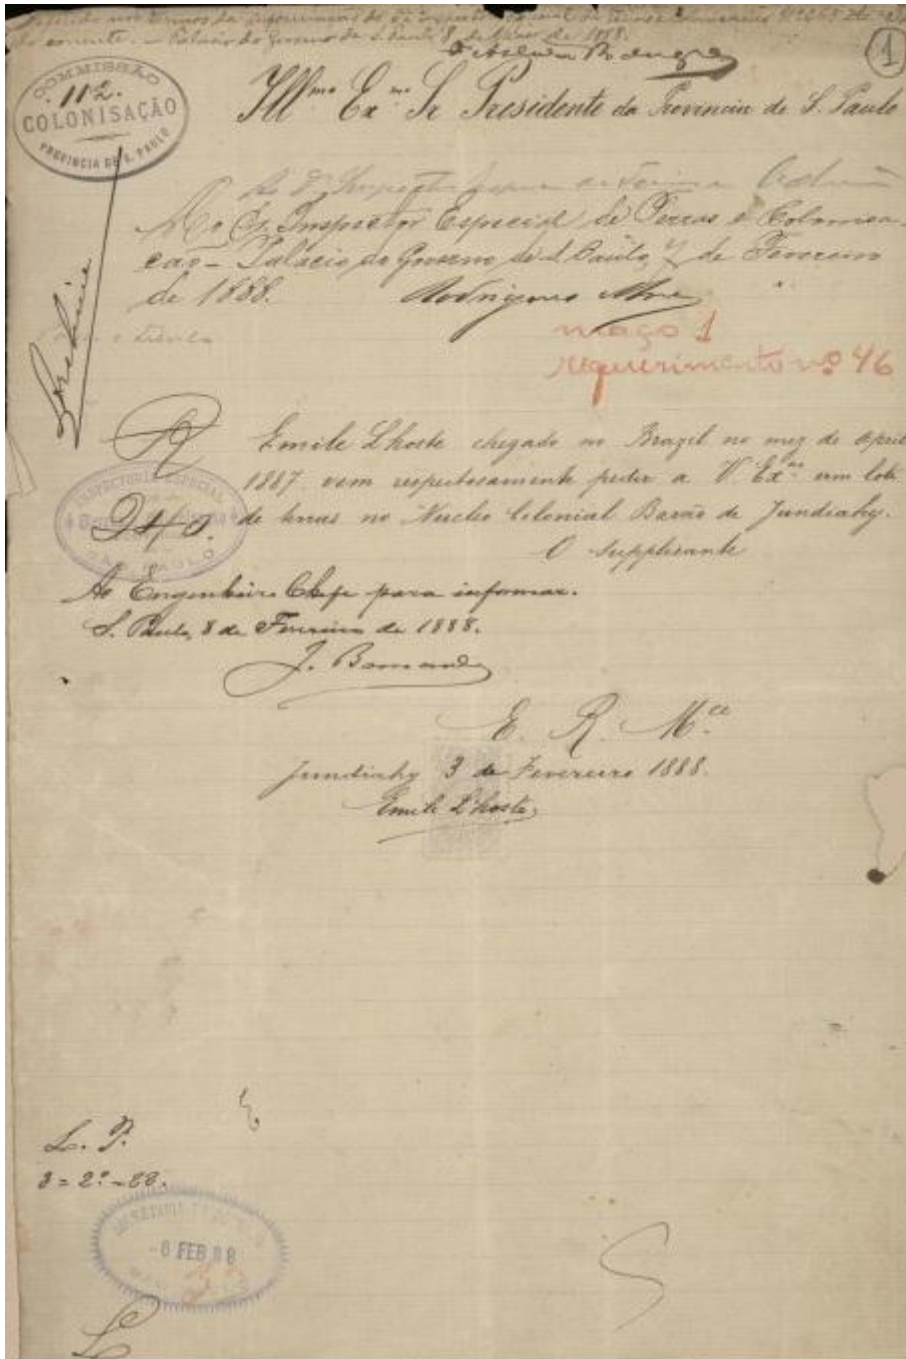 nos termos da informação do
corrente. — Palacio do Governo de S. Paulo 8 de de 1888.
1
COMMISSÃO
112.
COLONISAÇÃO
PROVINCIA DE S. PAULO
Illmo Exmo Sr Presidente da Provincia de S. Paulo
Ao Sr. Inspector Especial de Terras e Colonisa-
ção — Palacio do Governo de S. Paulo, 7 de Fevereiro
de 1888. Rodrigues Alves
maço 1
requerimento nº 46
Emile Lhoste chegado no Brazil no mez de April
1887 vem respeitosamente pedir a V. Exª um lote
INSPECTORIA ESPECIAL
S. PAULO
240.
de terras no Nucleo Colonial Barão de Jundiahy.
O Supplicante
Ao Engenheiro Chefe para informar.
S. Paulo, 8 de Fevereiro de 1888.
J.
E. R. Mce
Jundiahy 3 de Fevereiro 1888.
Emile Lhoste
L. P.
8 = 2º - 88.
6 FEB 88